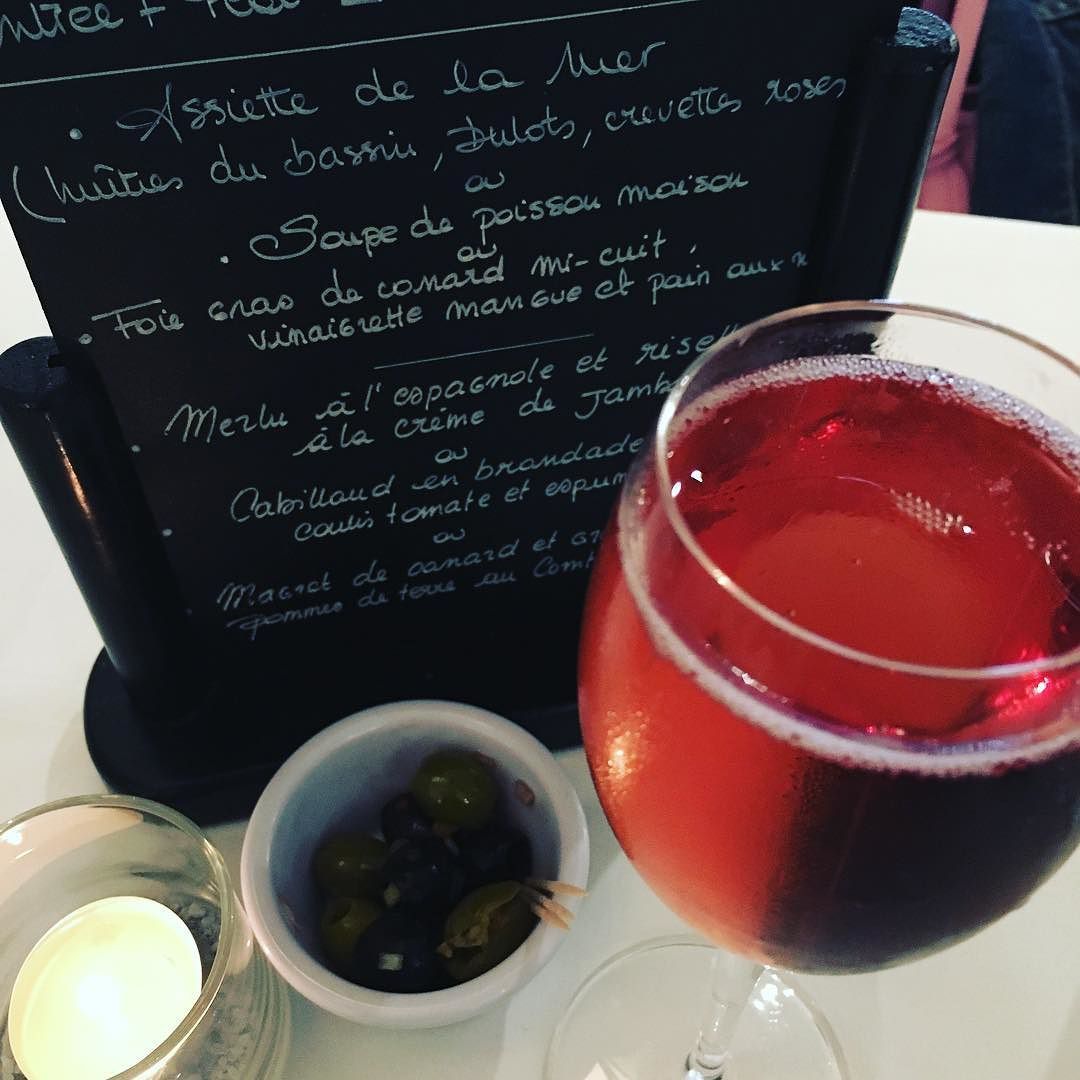 • Assiette de la Mer
(huîtres du bassin, Bulots, crevettes roses
ou
• Soupe de poisson maison
ou
• Foie gras de canard mi-cuit,
vinaigrette mangue et pain aux
• Merlu à l'espagnole et
à la crème de
ou
• Cabillaud en brandade
coulis tomate et
ou
• Magret de canard et
pommes de terre au